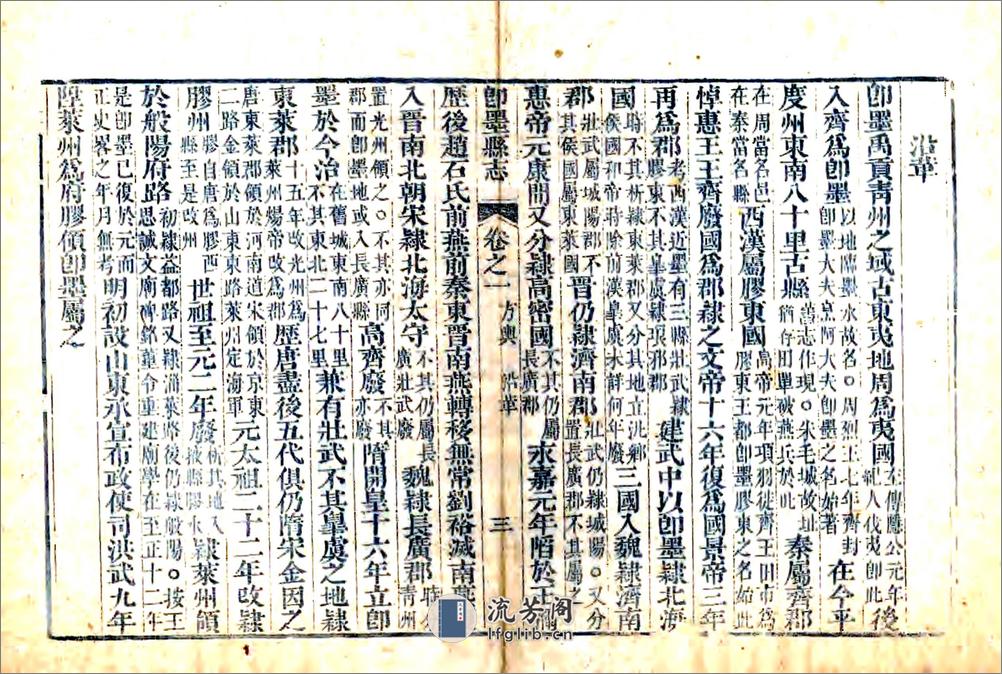 沿革
卽墨禹貢靑州之域古東夷地周爲夷國左傳隱公元年紀人伐夷卽此後
入齊爲卽墨以地臨墨水故名○周烈王七年齊封卽墨大夫烹阿大夫卽墨之名始著在今平
度州東南八十里古縣舊志作現○朱毛城故址猶存田單破燕兵於此秦屬齊郡
在周當名邑在秦當名縣西漢屬膠東國高帝元年項羽徙齊王田巿爲膠東王都卽墨膠東之名始此
悼惠王王齊廢國爲郡隸之文帝十六年復爲國景帝三年
再爲郡考西漢近墨有三縣壯武隸膠東不其皋虞隸琅邪郡建武中以卽墨隸北海
國時不其析隸東萊郡又分其地立沇鄉侯國和帝時除前漢皋虞未詳何年廢三國入魏隸濟南
郡壯武屬城陽郡不其侯國屬東萊國晉仍隸濟南郡壯武仍隸城陽○又分置長廣郡不其屬之
惠帝元康間又分隸高密國不其仍屬長廣郡永嘉元年陷於
卽墨縣志 卷之一 方輿 沿革 三
歷後趙石氏前燕前秦東晉南燕轉移無常劉裕滅南燕
入晉南北朝宋隸北海太守不其仍屬長廣壯武廢魏隸長廣郡時分青州
置光州領之○不其亦同郡而卽墨地或入長廣高齊廢不其亦廢隋開皇十六年立卽
墨於今治在舊城東南八十里不其東北二十七里兼有壯武不其皋虞之地隸
東萊郡十五年改光州爲萊州煬帝改爲郡歷唐盡後五代俱仍隋宋金因之
唐東萊郡領於河南道宋領於京東二路金領於山東東路萊州定海軍元太祖二十二年改隸
膠州膠自唐爲膠西縣至是改州世祖至元二年廢析其地入掖縣膠水隸萊州領
於般陽府路初隸益都路又隸淄萊路後仍隸般陽○按王思誠文廟碑銘董令重建廟學在至正十二年
是卽墨已復於元而正史畧之年月無考明初設山東承宣布政使司洪武九年
陞萊州爲府膠領卽墨屬之
流芳阁
lfglib.cn